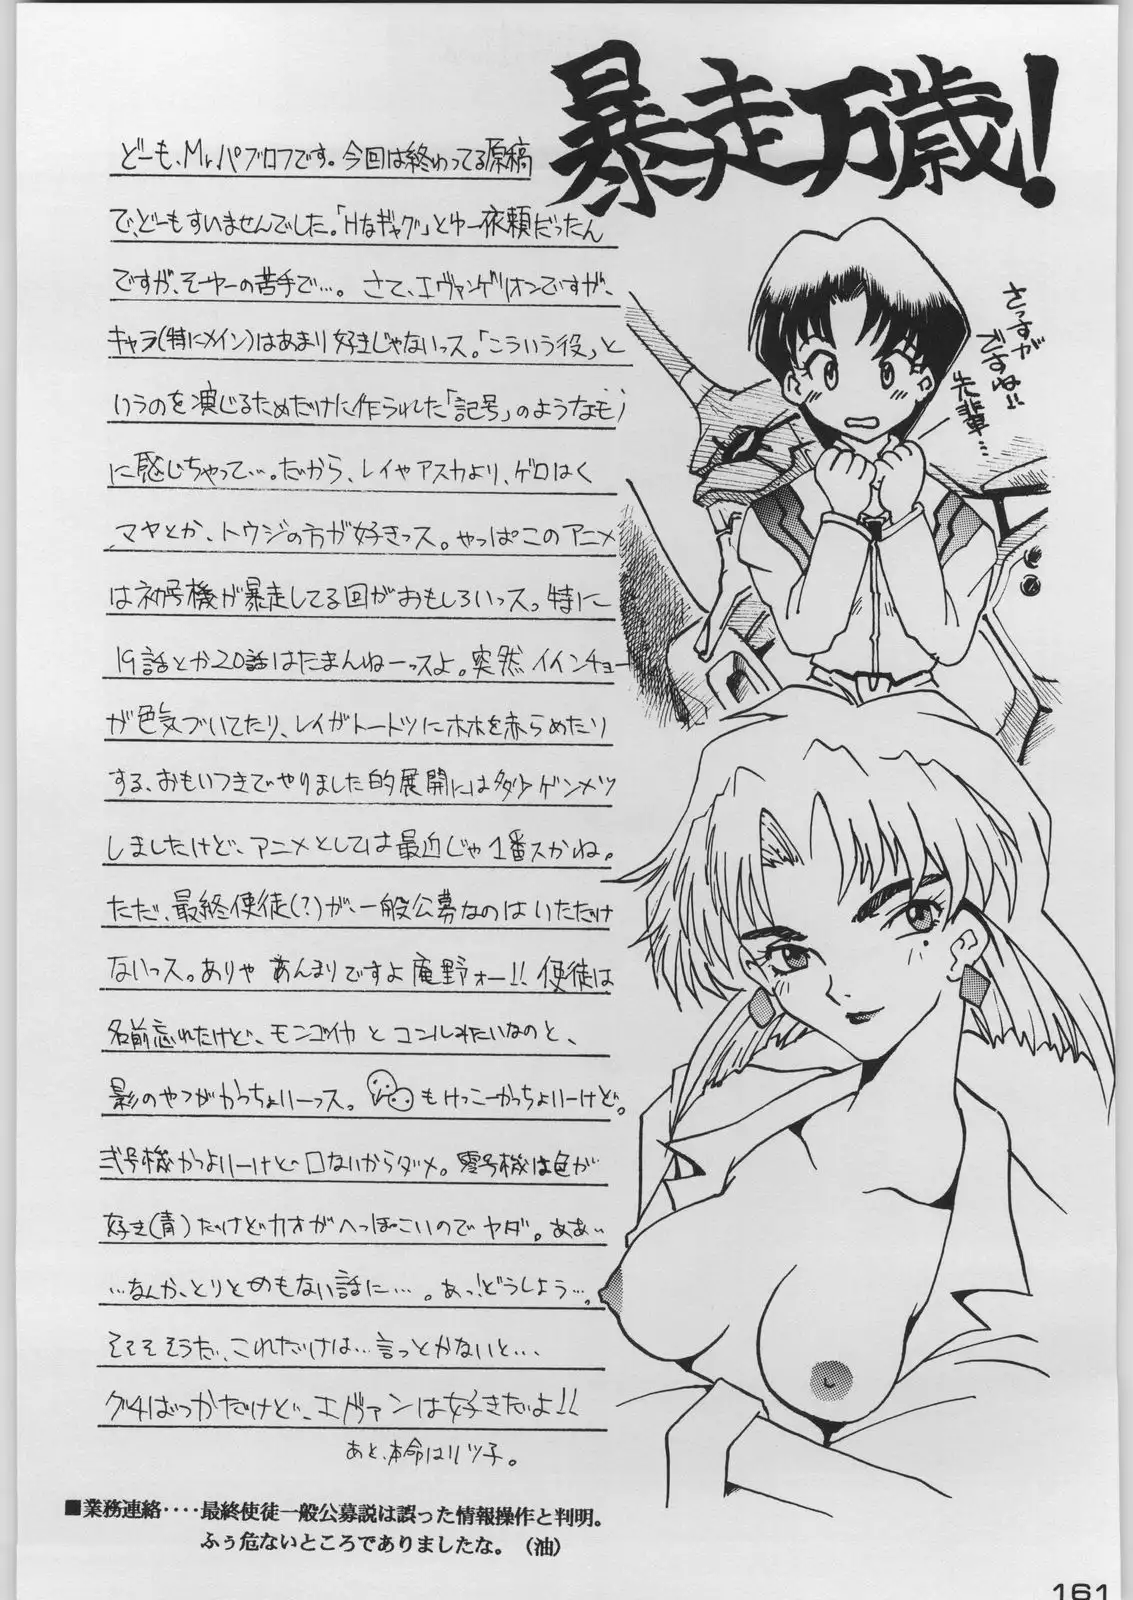 暴走万歳!
どーも、Mr.パブロフです。今回は終わってる原稿
で、どーもすいませんでした。「Hなギャグ」とゆー依頼だったん
ですが、そーゆーの苦手で…。さて、エヴァンゲリオンですが、
キャラ(特にメイン)はあまり好きじゃないっス。「こういう役」と
いうのを演じるためだけに作られした「記号」のようなモノ
に感じちゃって…。だから、レイやアスカより、ゲロはく
マヤとか、トウジの方が好きっス。やっぱこのアニメ
は初号機が暴走してる回がおもしろいっス。特に
19話とか20話はたまんねーっスよ。突然イインチョー
が色気づいてたり、レイがトートツにホホを赤らめたり
する、おもいつきでやりました的展開には多少ゲンメツ
しましたけど、アニメとしては最近じゃ1番スかね。
ただ、最終使徒(?)が、一般公募なのはいただけ
ないっス。ありゃあんまりですよ庵野ォー!!使徒は
名前忘れたけど、モンゴイカとコンルみたいなのと、
影のやつがかっちょいーっス。もけっこーかっちょいーけど。
弐号機かっよいーけど口ないからダメ。零号機は色が
好き(青)だけどカオがへっぽこいのでヤダ。ああ…
…なんか、とりとめもない話に…。あっ!どうしよう…。
そそそそうだ、これだけは…言っとかないと…
グチばっかだけど、エヴァンは好きだよ!!
あと、本命はリツ子。
さっすが
ですね!!
先輩…
■業務連絡‥‥最終使徒一般公募説は誤った情報操作と判明。
ふぅ危ないところでありましたな。(油)
161